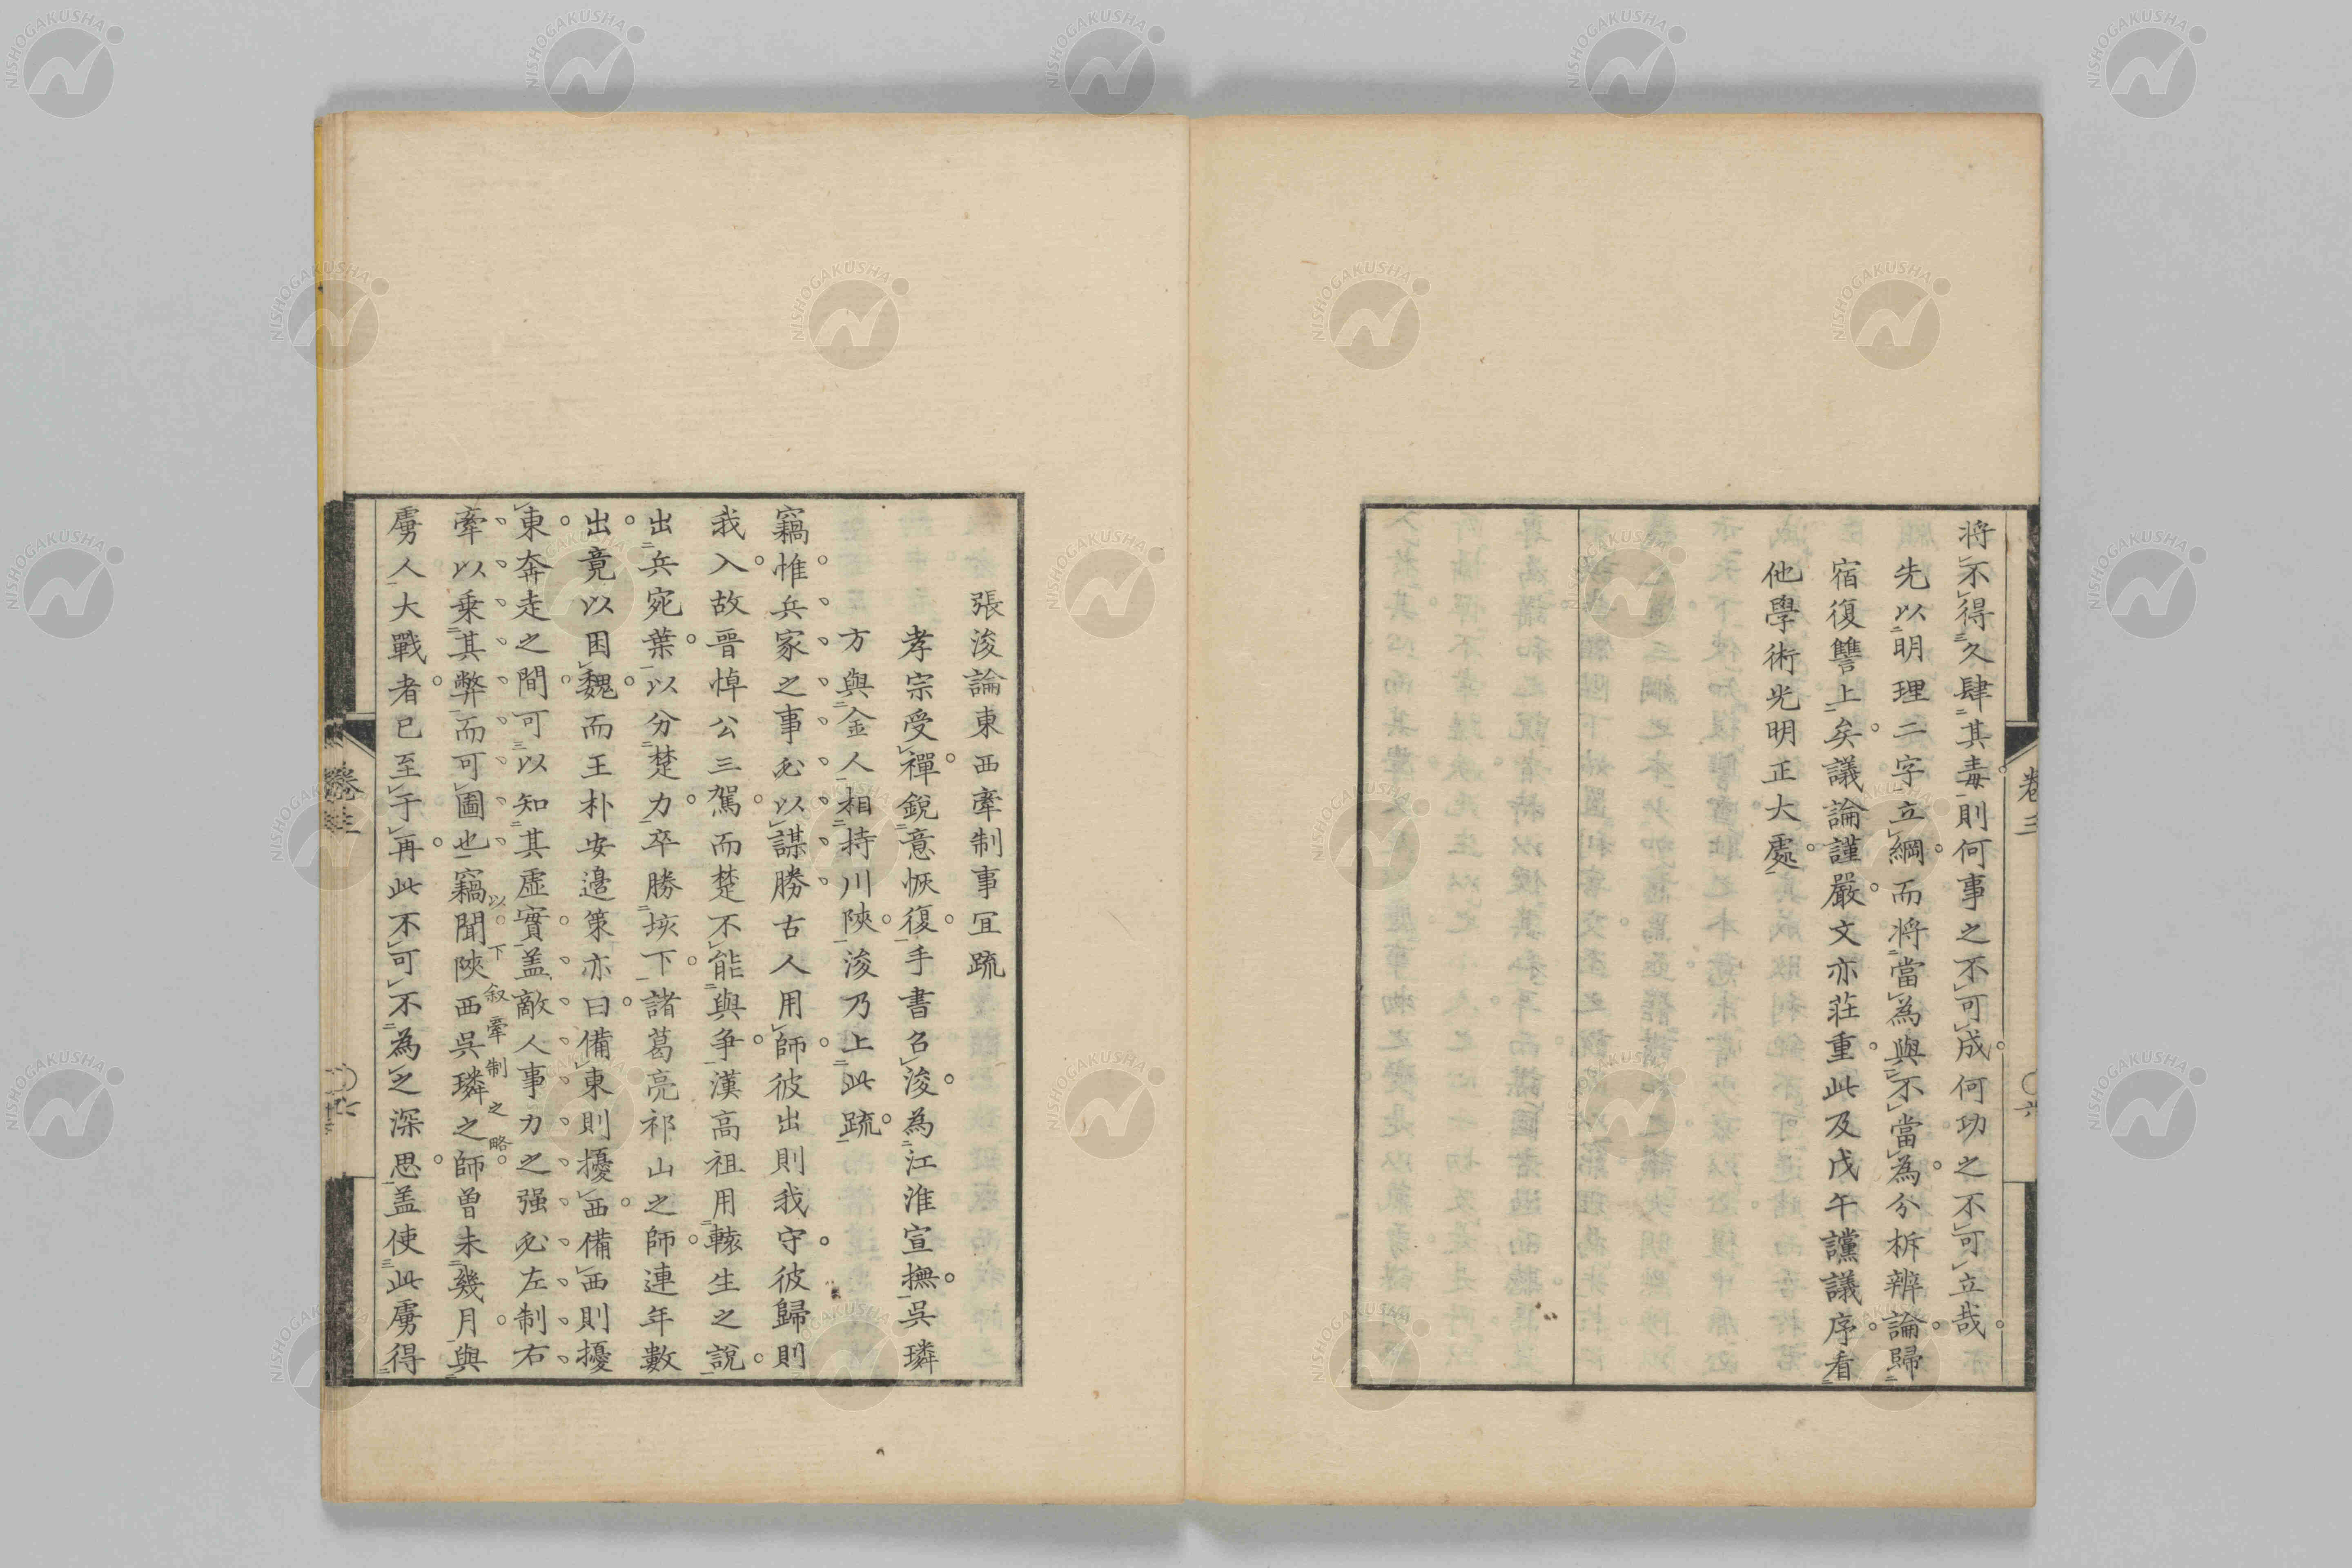 將不得久肆其毒則何事之不可成何功之不可立哉
先以明理二字立綱而將當為與不當為分柝辨論歸
宿復讐上矣議論謹嚴文亦莊重此及戊午讜議序看
他學術光明正大處
卷三
張浚論東西牽制事宜疏
孝宗受禪銳意恢復手書召浚為江淮宣撫吳璘
方與金人相持川陝浚乃上此疏
竊惟兵家之事必以謀勝古人用師彼出則我守彼歸則
我入故晉悼公三駕而楚不能與爭漢高祖用轅生之說
出兵宛葉以分楚力卒勝垓下諸葛亮祁山之師連年數
出竟以困魏而王朴安邊策亦曰備東則擾西備西則擾
東奔走之間可以知其虛實盖敵人事力之强必左制右
牽以乘其弊而可圖也竊聞陝西吳璘之師曾未幾月與
以下叙牽制之略
虜人大戰者已至于再此不可不為之深思盖使此虜得
卷三
NISHOGAKUSHA